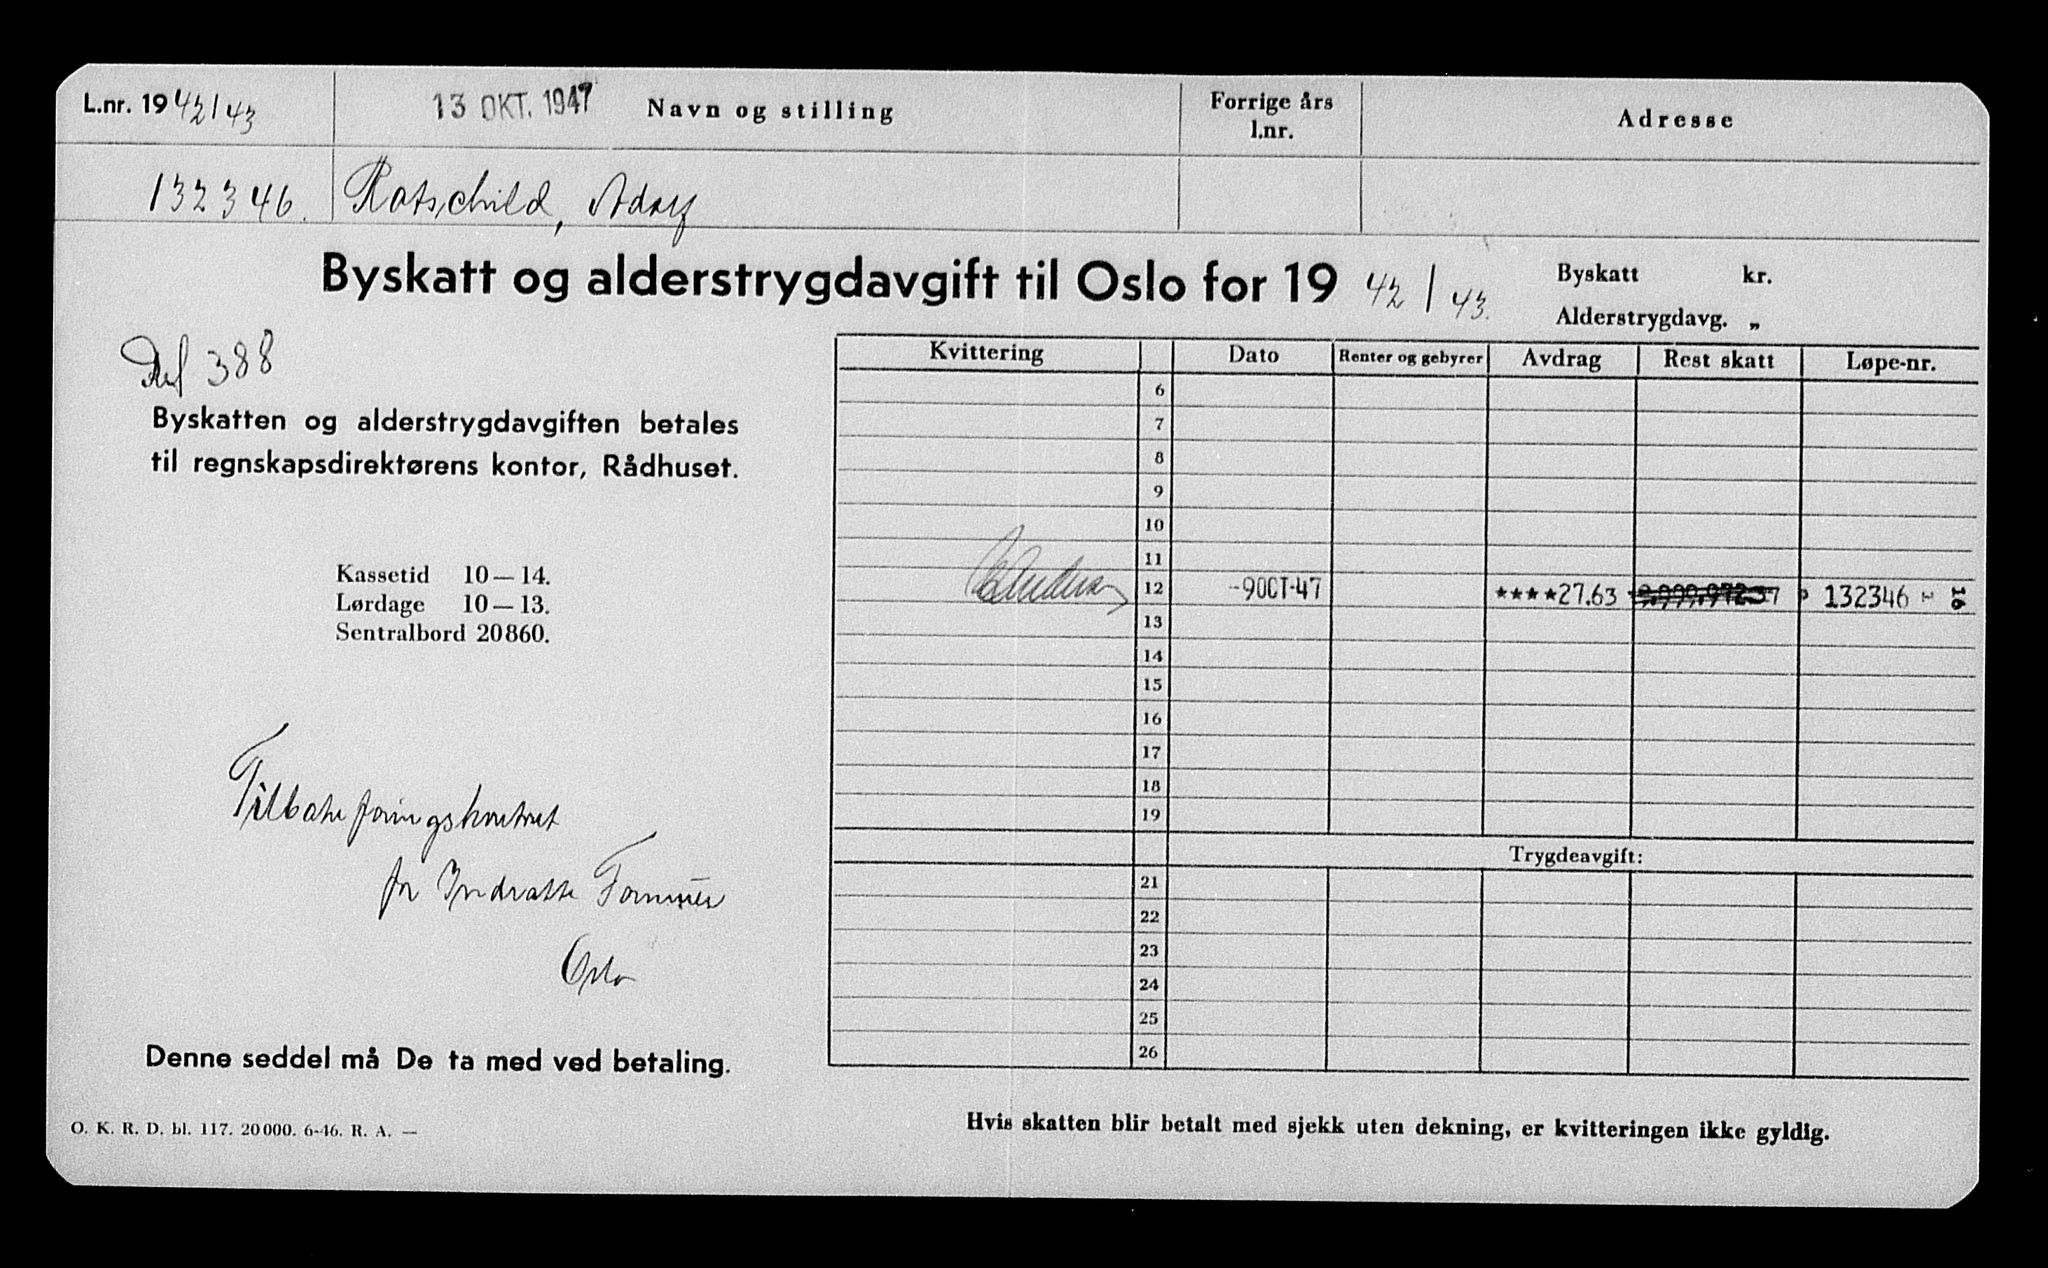 L.nr. 19 42/43
13 OKT. 1947 Navn og stilling
Forrige års
l.nr.
Adresse
132346. Rotschild, Adolf
Byskatt og alderstrygdavgift til Oslo for 19 42/43.
Byskatt kr.
Alderstrygdavg. „
388
Byskatten og alderstrygdavgiften betales
til regnskapsdirektørens kontor, Rådhuset.
Kassetid 10—14.
Lørdage 10—13.
Sentralbord 20860.
Tilbakeføringskontoret
for Inndratte Formuer
Oslo
Denne seddel må De ta med ved betaling.
O. K. R. D. bl. 117. 20000. 6-46. R. A. —
Kvittering Dato Renter og gebyrer Avdrag Rest skatt Løpe-nr.
6
7
8
9
10
11
12 -9OCT-47 ★★★★27.63 132346 16
13
14
15
16
17
18
19
Trygdeavgift:
21
22
23
24
25
26
Hvis skatten blir betalt med sjekk uten dekning, er kvitteringen ikke gyldig.